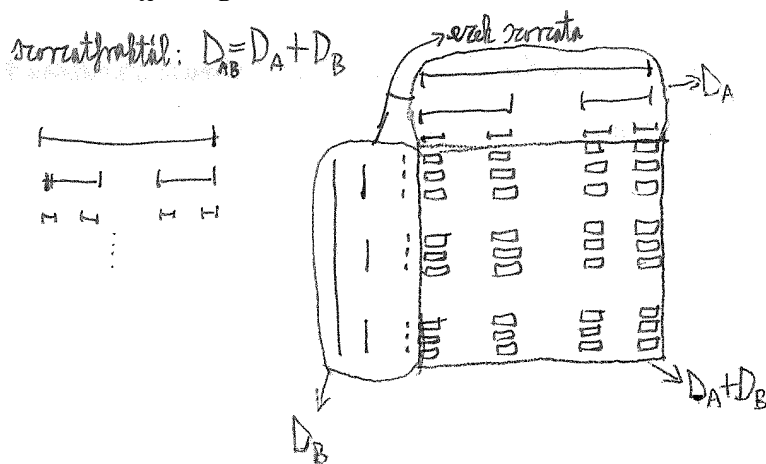 szorzatfraktál: D_AB = D_A + D_B
ezek szorzata
D_A
D_A + D_B
D_B